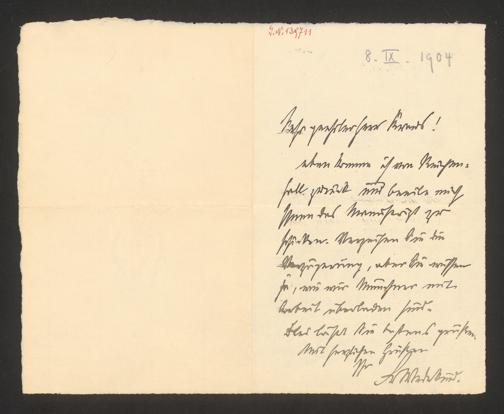 I.N. 139711
8. IX. 1904
Sehr geehrter Herr Kraus!
eben komme ich von Reichen-
hall zurück und beeile mich
Ihnen das Manuscript zu
schicken. Verzeihen Sie die
Verzögerung, aber Sie wissen
ja, wie wir Münchner mit
Arbeit überladen sind.
läßt Sie bestens grüßen.
Mit herzlichen Grüßen
Ihr